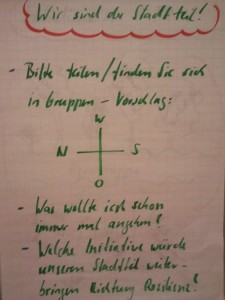 Wir sind der Stadtteil!
- Bitte teilen/finden Sie sich
in Gruppen - Vorschlag:
W
N S
O
- Was wollte ich schon
immer mal angehen?
- Welche Initiative würde
unseren Stadtteil weiter-
bringen Richtung Resilienz?